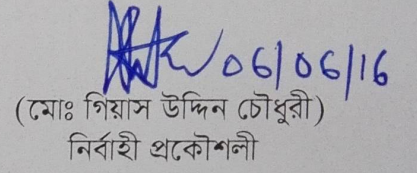 06/06/16
(মোঃ গিয়াস উদ্দিন চৌধুরী)
নির্বাহী প্রকৌশলী